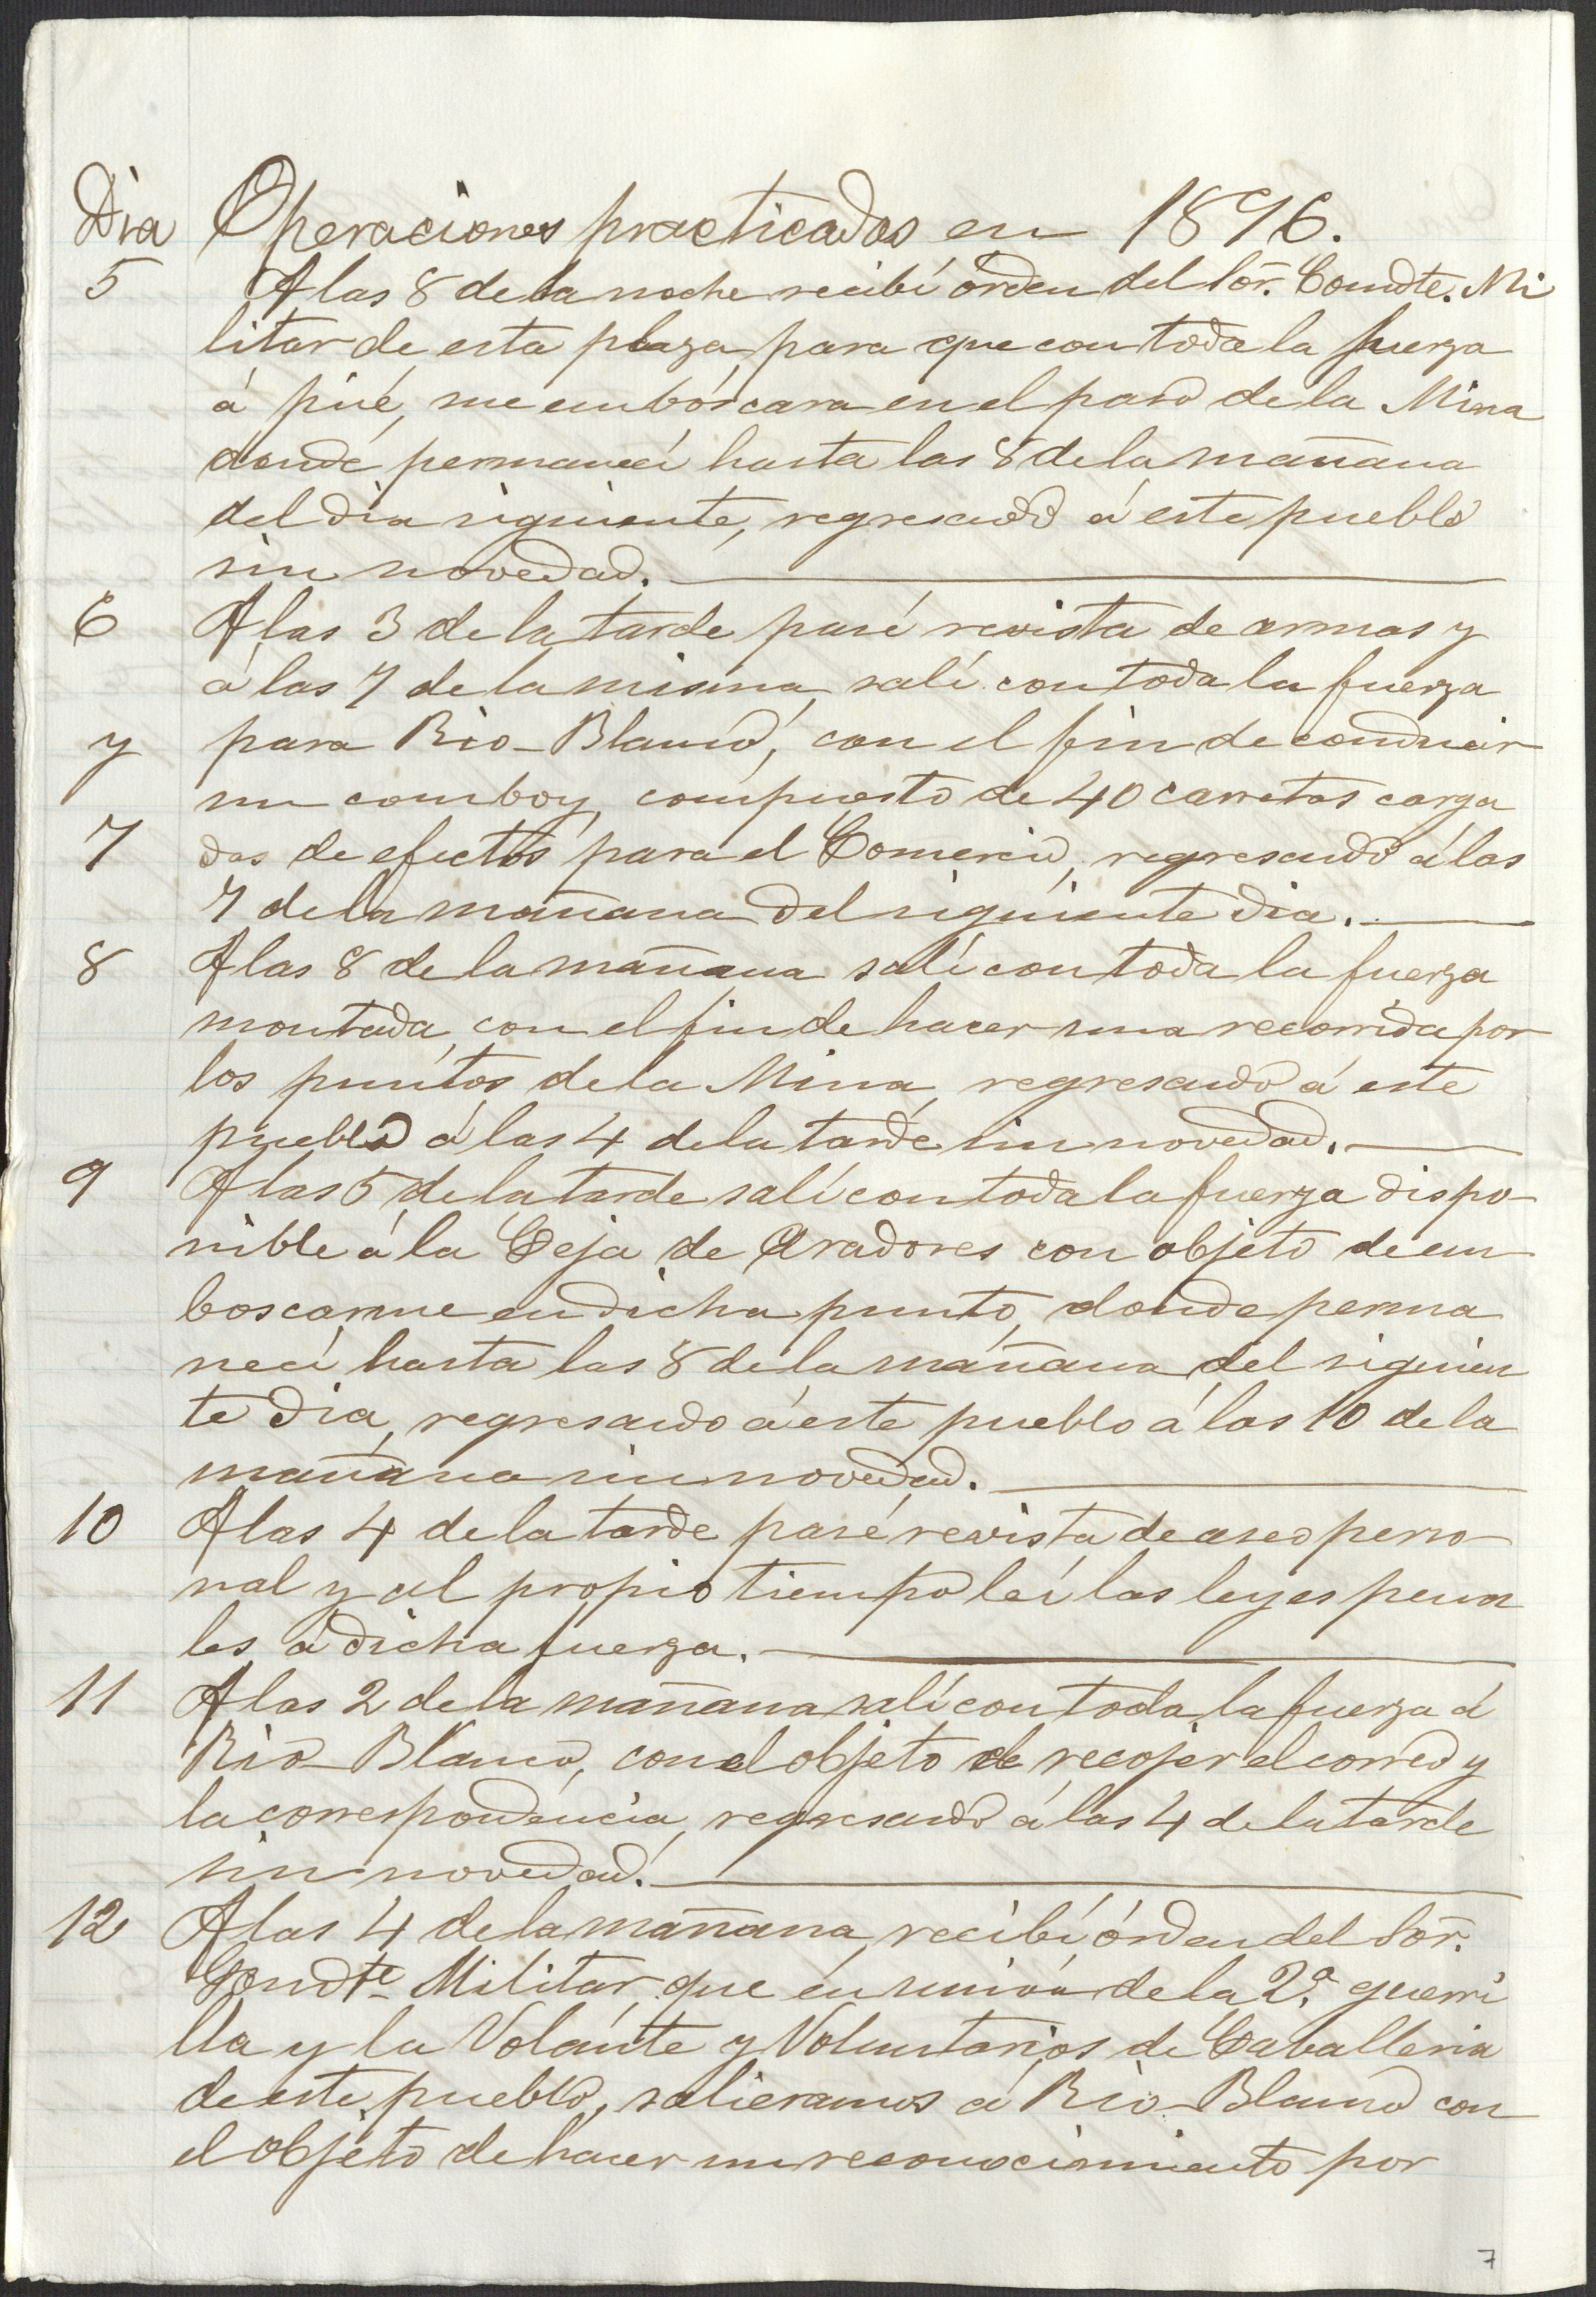 Dia Operaciones practicadas en 1896.
5 A las 8 de la noche recibí órden del Sōr. Comdte. Mi
litar de esta plaza, para que con toda la fuerza
á pié, me embóscara en el paso de la Mina
donde permanecí hasta las 8 de la mañana
del dia siguiente, regresando á este pueblo
sin novedad.
6 A las 3 de la tarde pasé revista de armas y
á las 7 de la misma, salí con toda la fuerza
y para Rio-Blanco, con el fin de conducir
un comboy, compuesto de 40 carretas carga
7 das de efectos para el Comercio, regresando á las
7 de la mañana del siguiente dia.
8 A las 8 de la mañana salí con toda la fuerza
montada, con el fin de hacer una recorrida por
los puntos de la Mina, regresando á este
pueblo á las 4 de la tarde sin novedad.
9 A las 5 de la tarde salí con toda la fuerza dispo-
nible á la Ceja de Aradores con objeto de em
boscarme en dicho punto, donde perma
necí hasta las 8 de la mañana del siguien
te dia, regresando á este pueblo á las 10 de la
mañana sin novedad.
10 A las 4 de la tarde pasé revista de aseo perso
nal y al propio tiempo leí las leyes pena
les á dicha fuerza.
11 A las 2 de la mañana salí con toda la fuerza á
Rio-Blanco, con el objeto de recojer el correo y
la correspondencia, regresando á las 4 de la tarde
sin novedad.
12 A las 4 de la mañana, recibí órden del Sōr.
Comdte Militar, que en union de la 2.ª guerri
lla y la Volante y Voluntarios de Caballeria
de este pueblo, salieramos á Rio-Blanco con
el objeto de hacer un reconocimiento por
7